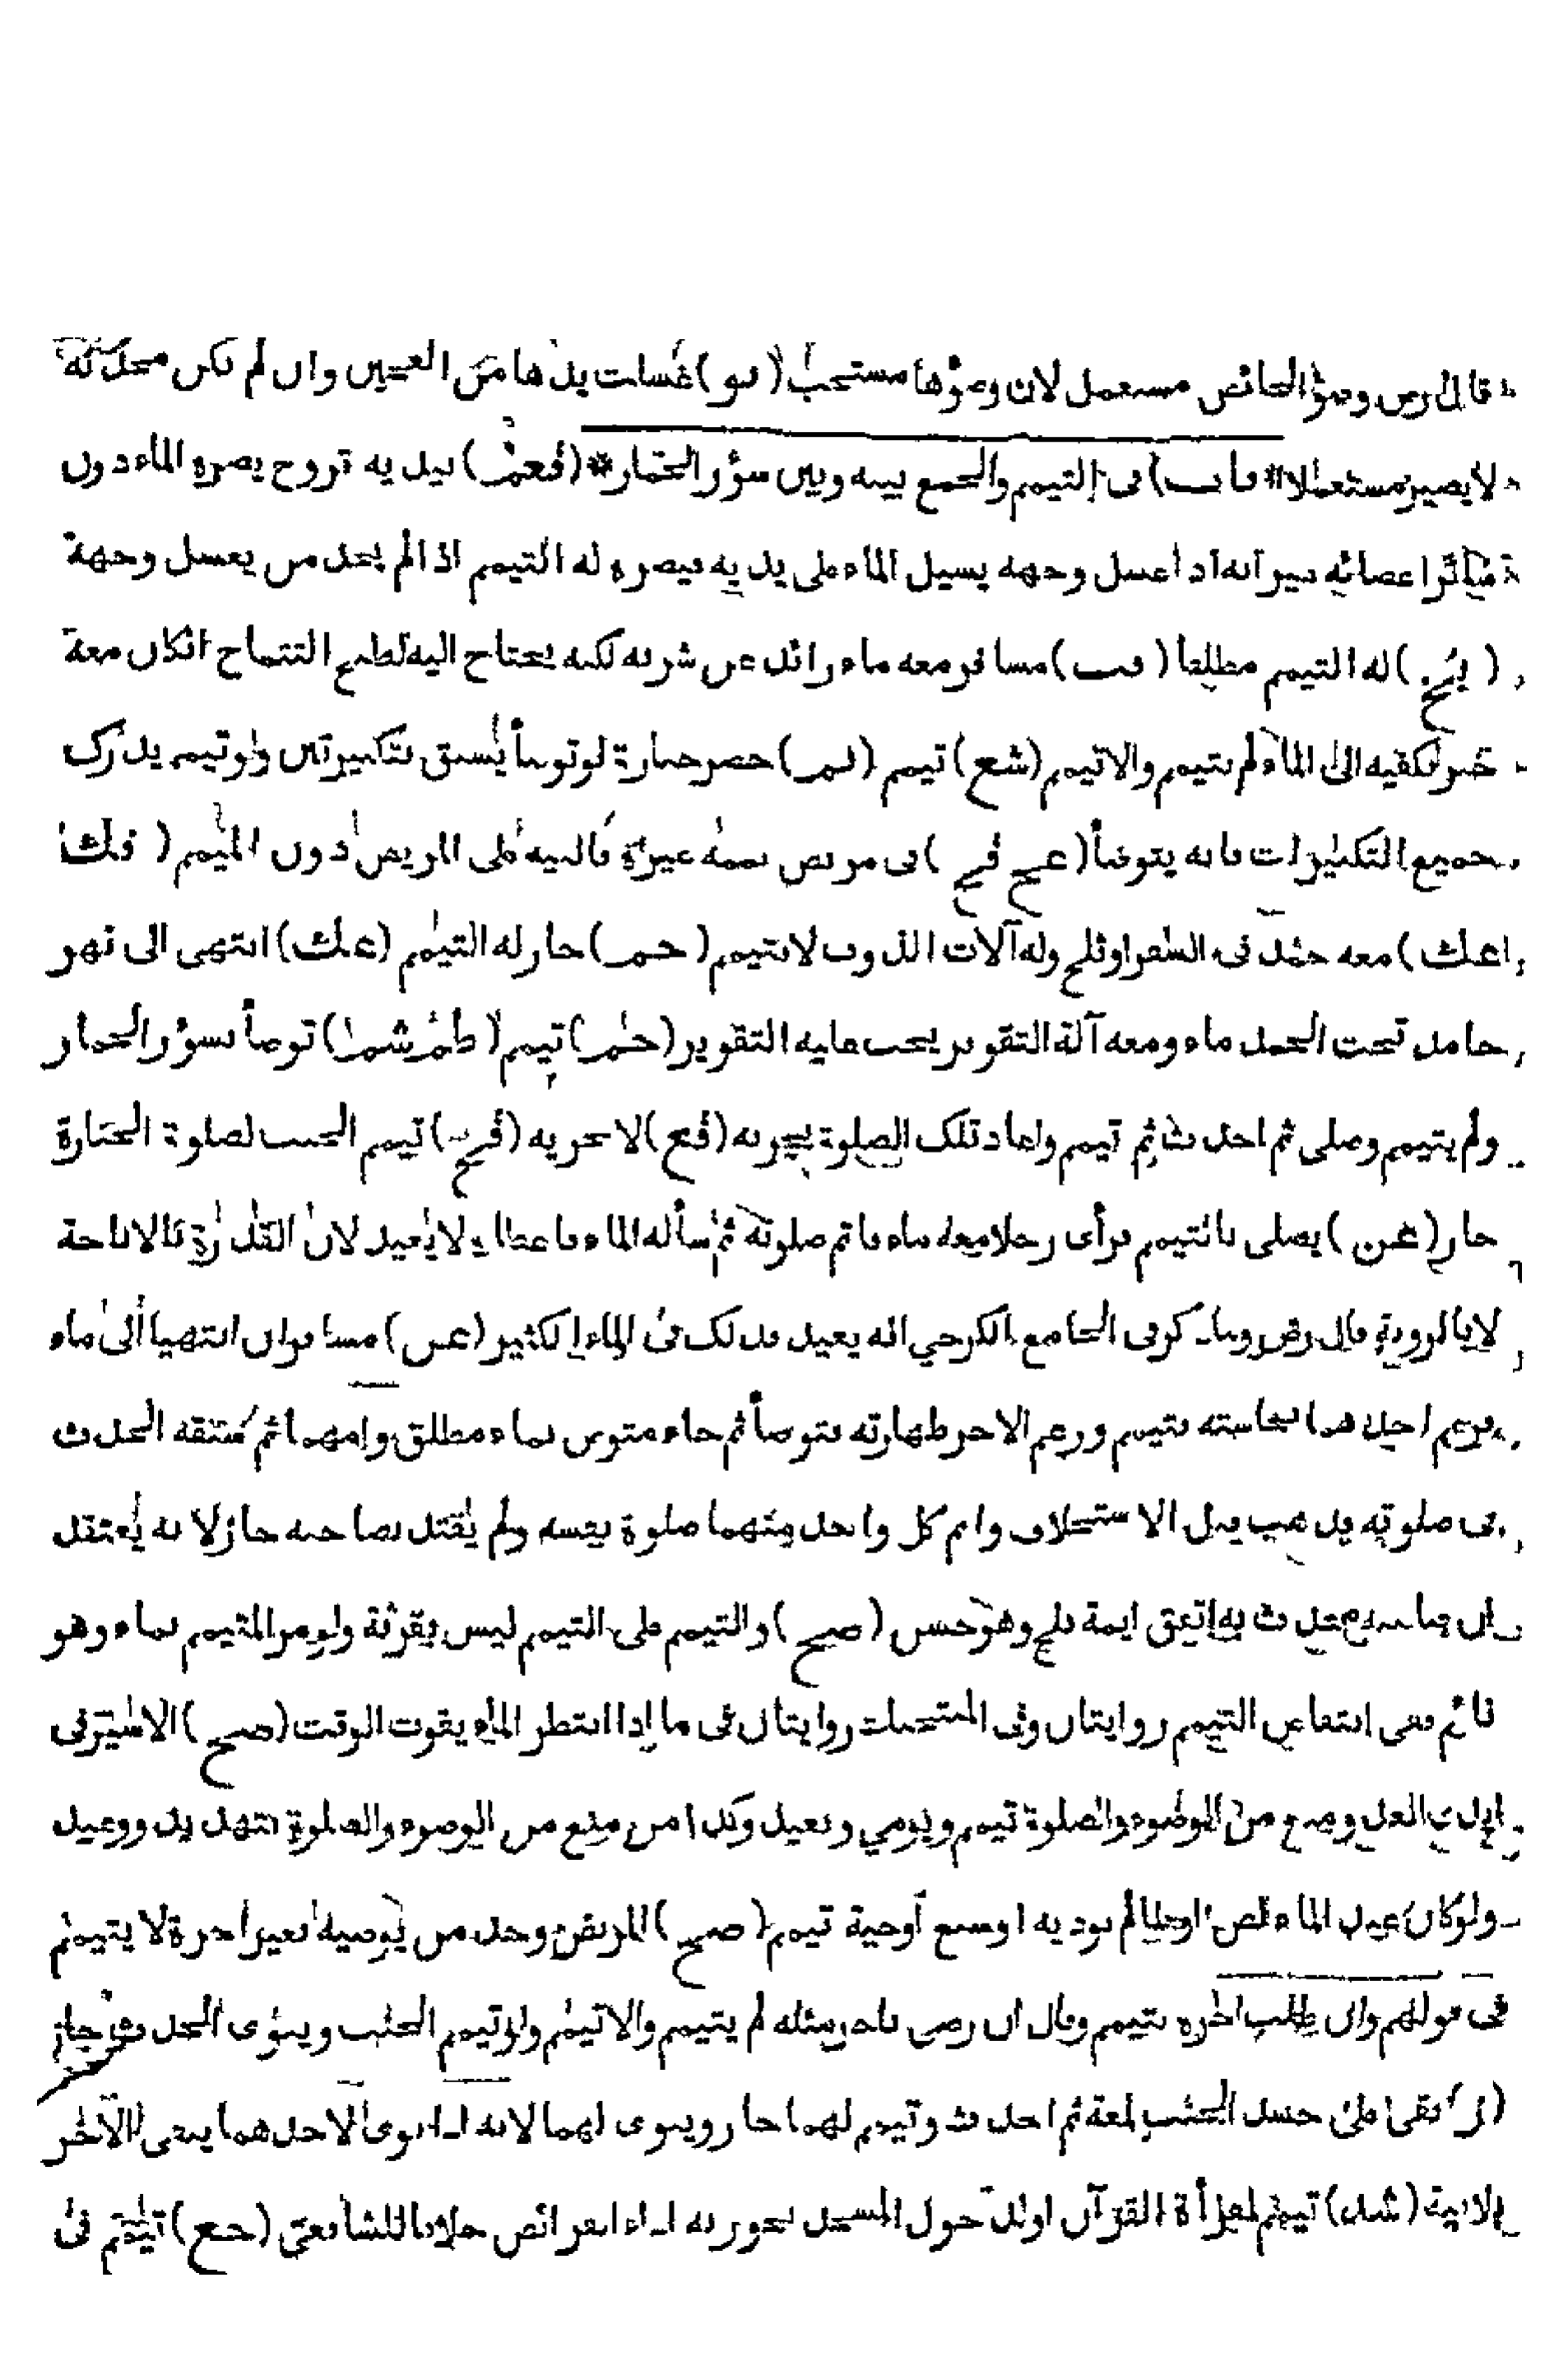 قال رض وضوء الحائض مستعمل لان وضوؤها مستحب (بو) غسلت يدها من العجين وان لم تكن محدثة
لا يصير مستعملا * باب) فى التيمم والجمع بينه وبين سؤر الحمار * (فعم) بيديه قروح يضره الماء دون
سائر اعضائه غير انه اذا غسل وجهه يسيل الماء على يديه فيضره له التيمم اذا لم يجد من يغسل وجهه
( يخ ) له التيمم مطلقا ( فب ) مسافر معه ماء زائد عن شربه لكنه يحتاج اليه لطبخ التتماج انكان معه
خبز يكفيه الى الماء لم يتيمم والا تيمم (شع) تيمم (نمر) حضر جنازة لو توضأ يسبق بتكبيرتين ولو تيمم يدرك
جميع التكبيرات فانه يتوضأ (عح فح ) فى مريض يممه غيره فالنية على المريض دون الميمم ( فك
عك ) معه جمد فى السفر او ثلج وله آلات الذوب لا يتيمم ( حمر ) جاز له التيمم (عك) انتهى الى نهر
جامد تحت الجمد ماء ومعه آلة التقوير يجب عليه التقوير (حمر) تيمم ( طم شم ) توضأ بسؤر الحمار
ولم يتيمم وصلى ثم احدث ثم تيمم واعاد تلك الصلوة يجزيه (فع) لا يجزيه (فح) تيمم الجنب لصلوة الجنازة
جاز (عن ) يصلى بالتيمم فرأى رجلا معه ماء فاتم صلوته ثم سأله الماء فاعطاه لا يعيد لان القدرة بالاباحة
لا بالروية قال رض وذكر فى الجامع الكرخي انه يعيد فذلك فى الماء الكثير (عس) مسافران انتهيا الى ماء
فزعم احدهما نجاسته فتيمم وزعم الآخر طهارته فتوضأ ثم جاء متوض بماء مطلق وامهما ثم سبقه الحدث
فى صلوته فذهب قبل الاستخلاف واتم كل واحد منهما صلوة نفسه ولم يقتد بصاحبه جاز لانه يعتقد
ان صاحبه محدث به افتى ايمة بلخ وهو حسن (صح ) والتيمم على التيمم ليس بقربة ولو مر المتيمم بماء وهو
نائم ففى انتقاض التيمم روايتان وفى المتجسات روايتان فى ما اذا انتظر الماء يفوت الوقت (صح ) الاسير فى
يدي العدو منع من الوضوء والصلوة تيمم ويومي ويعيد وكذا من منع من الوضوء والصلوة بتهديد ووعيد
ولو كان عند الماء لص او ظالم يوذيه او سبع او حية تيمم ( صح ) المريض وجد من يوضيه بغير اجرة لا يتيمم
فى قولهم وان طلب اجره يتيمم وقال ان رضى باجر مثله لم يتيمم والا تيمم ولو تيمم الجنب وينوى الحدث جاز
بقى على جسد الجنب لمعة ثم احدث وتيمم لهما جاز وينوى لهما لانه اذا نوى لاحدهما يبقى الآخر
بلا نية (شد) تيمم لقراءة القرآن او لدخول المسجد يجوز به اداء الفرائض خلافا للشافعى (جع) تيمم فى